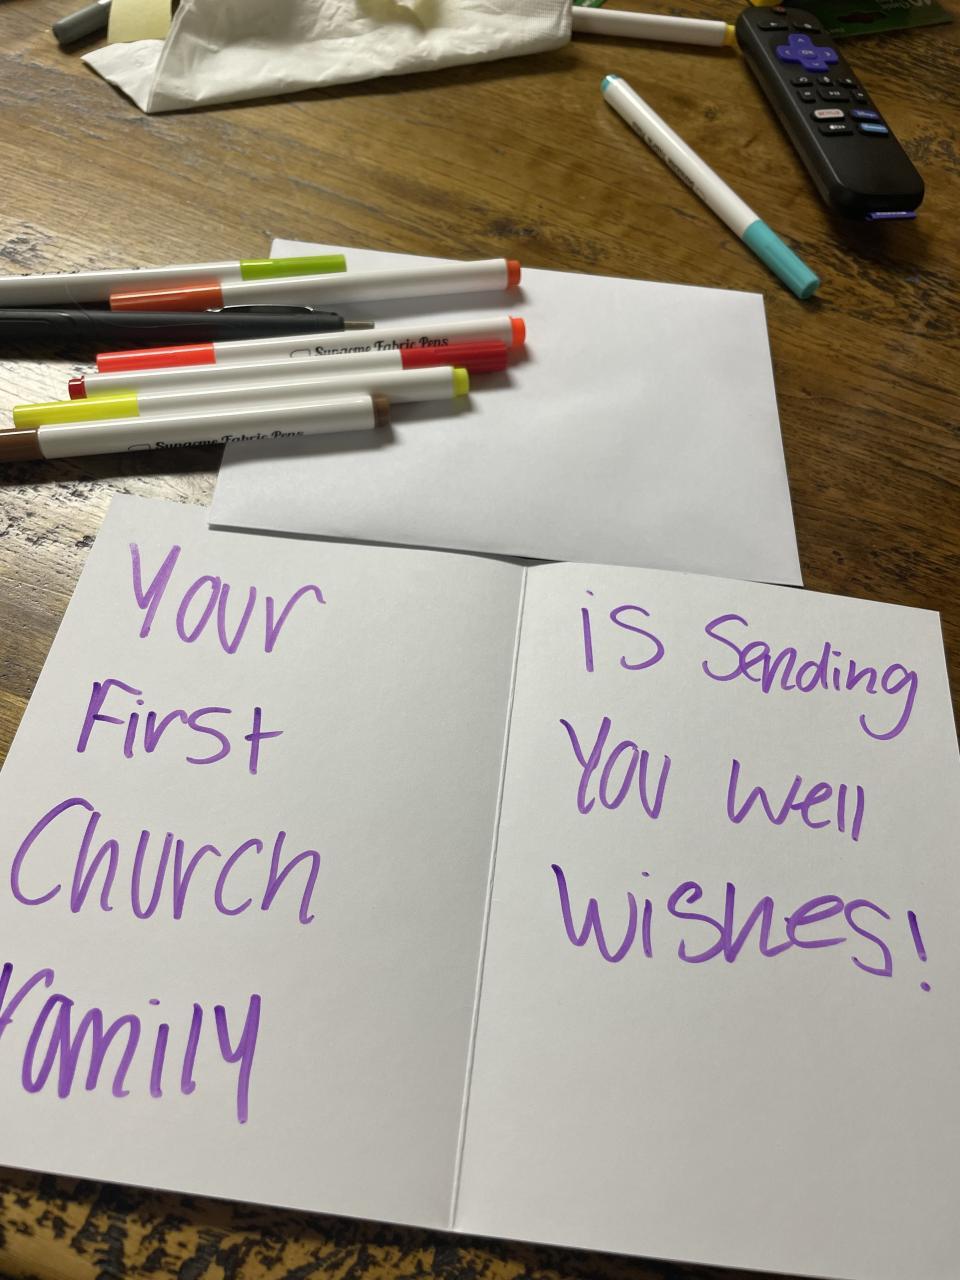 Sunacme Fabric Pens
Sunacme Fabric Pens
Your
First
Church
Family
is Sending
You well
Wishes!